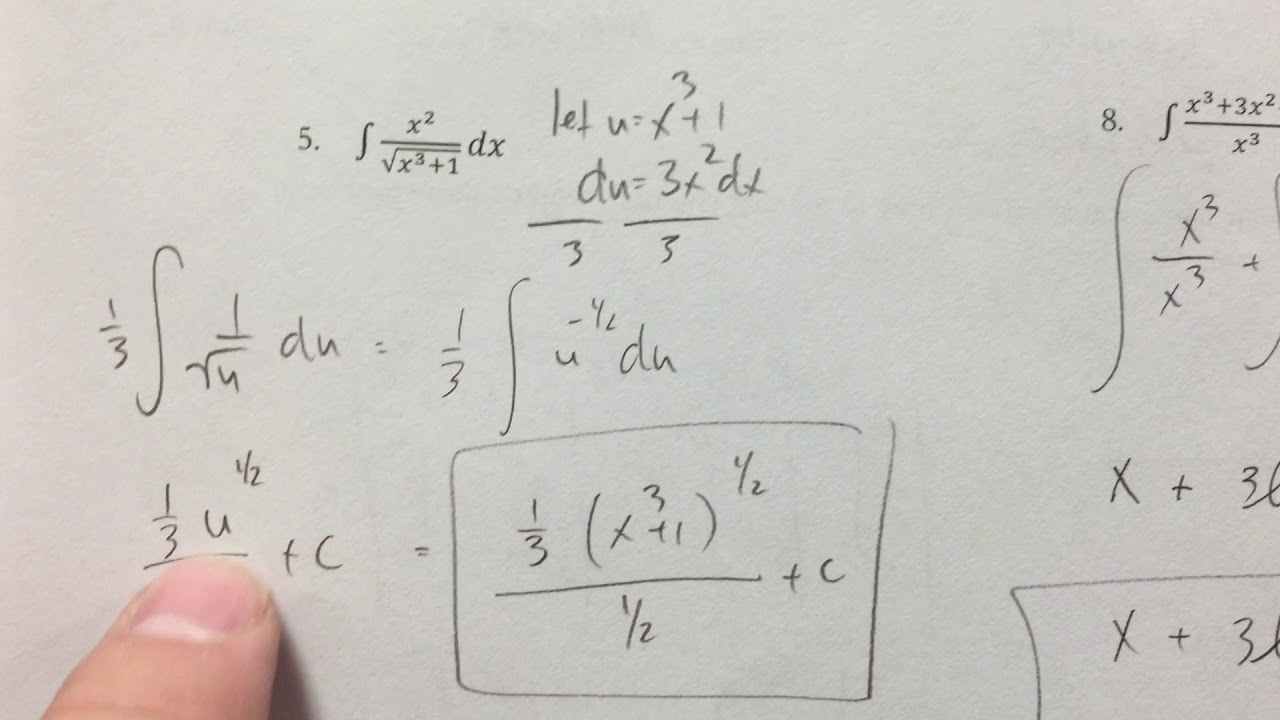 5. ∫ x²/√(x³+1) dx
let u = x³+1
du = 3x²dx
3 3
1/3 ∫ 1/√u du = 1/3 ∫ u^(-1/2) du
1/3 u^(1/2) + C = (1/3 (x³+1)^(1/2))/(1/2) + C
8. ∫ x³+3x²/x³
∫ x³/x³ +
x + 3
x + 3